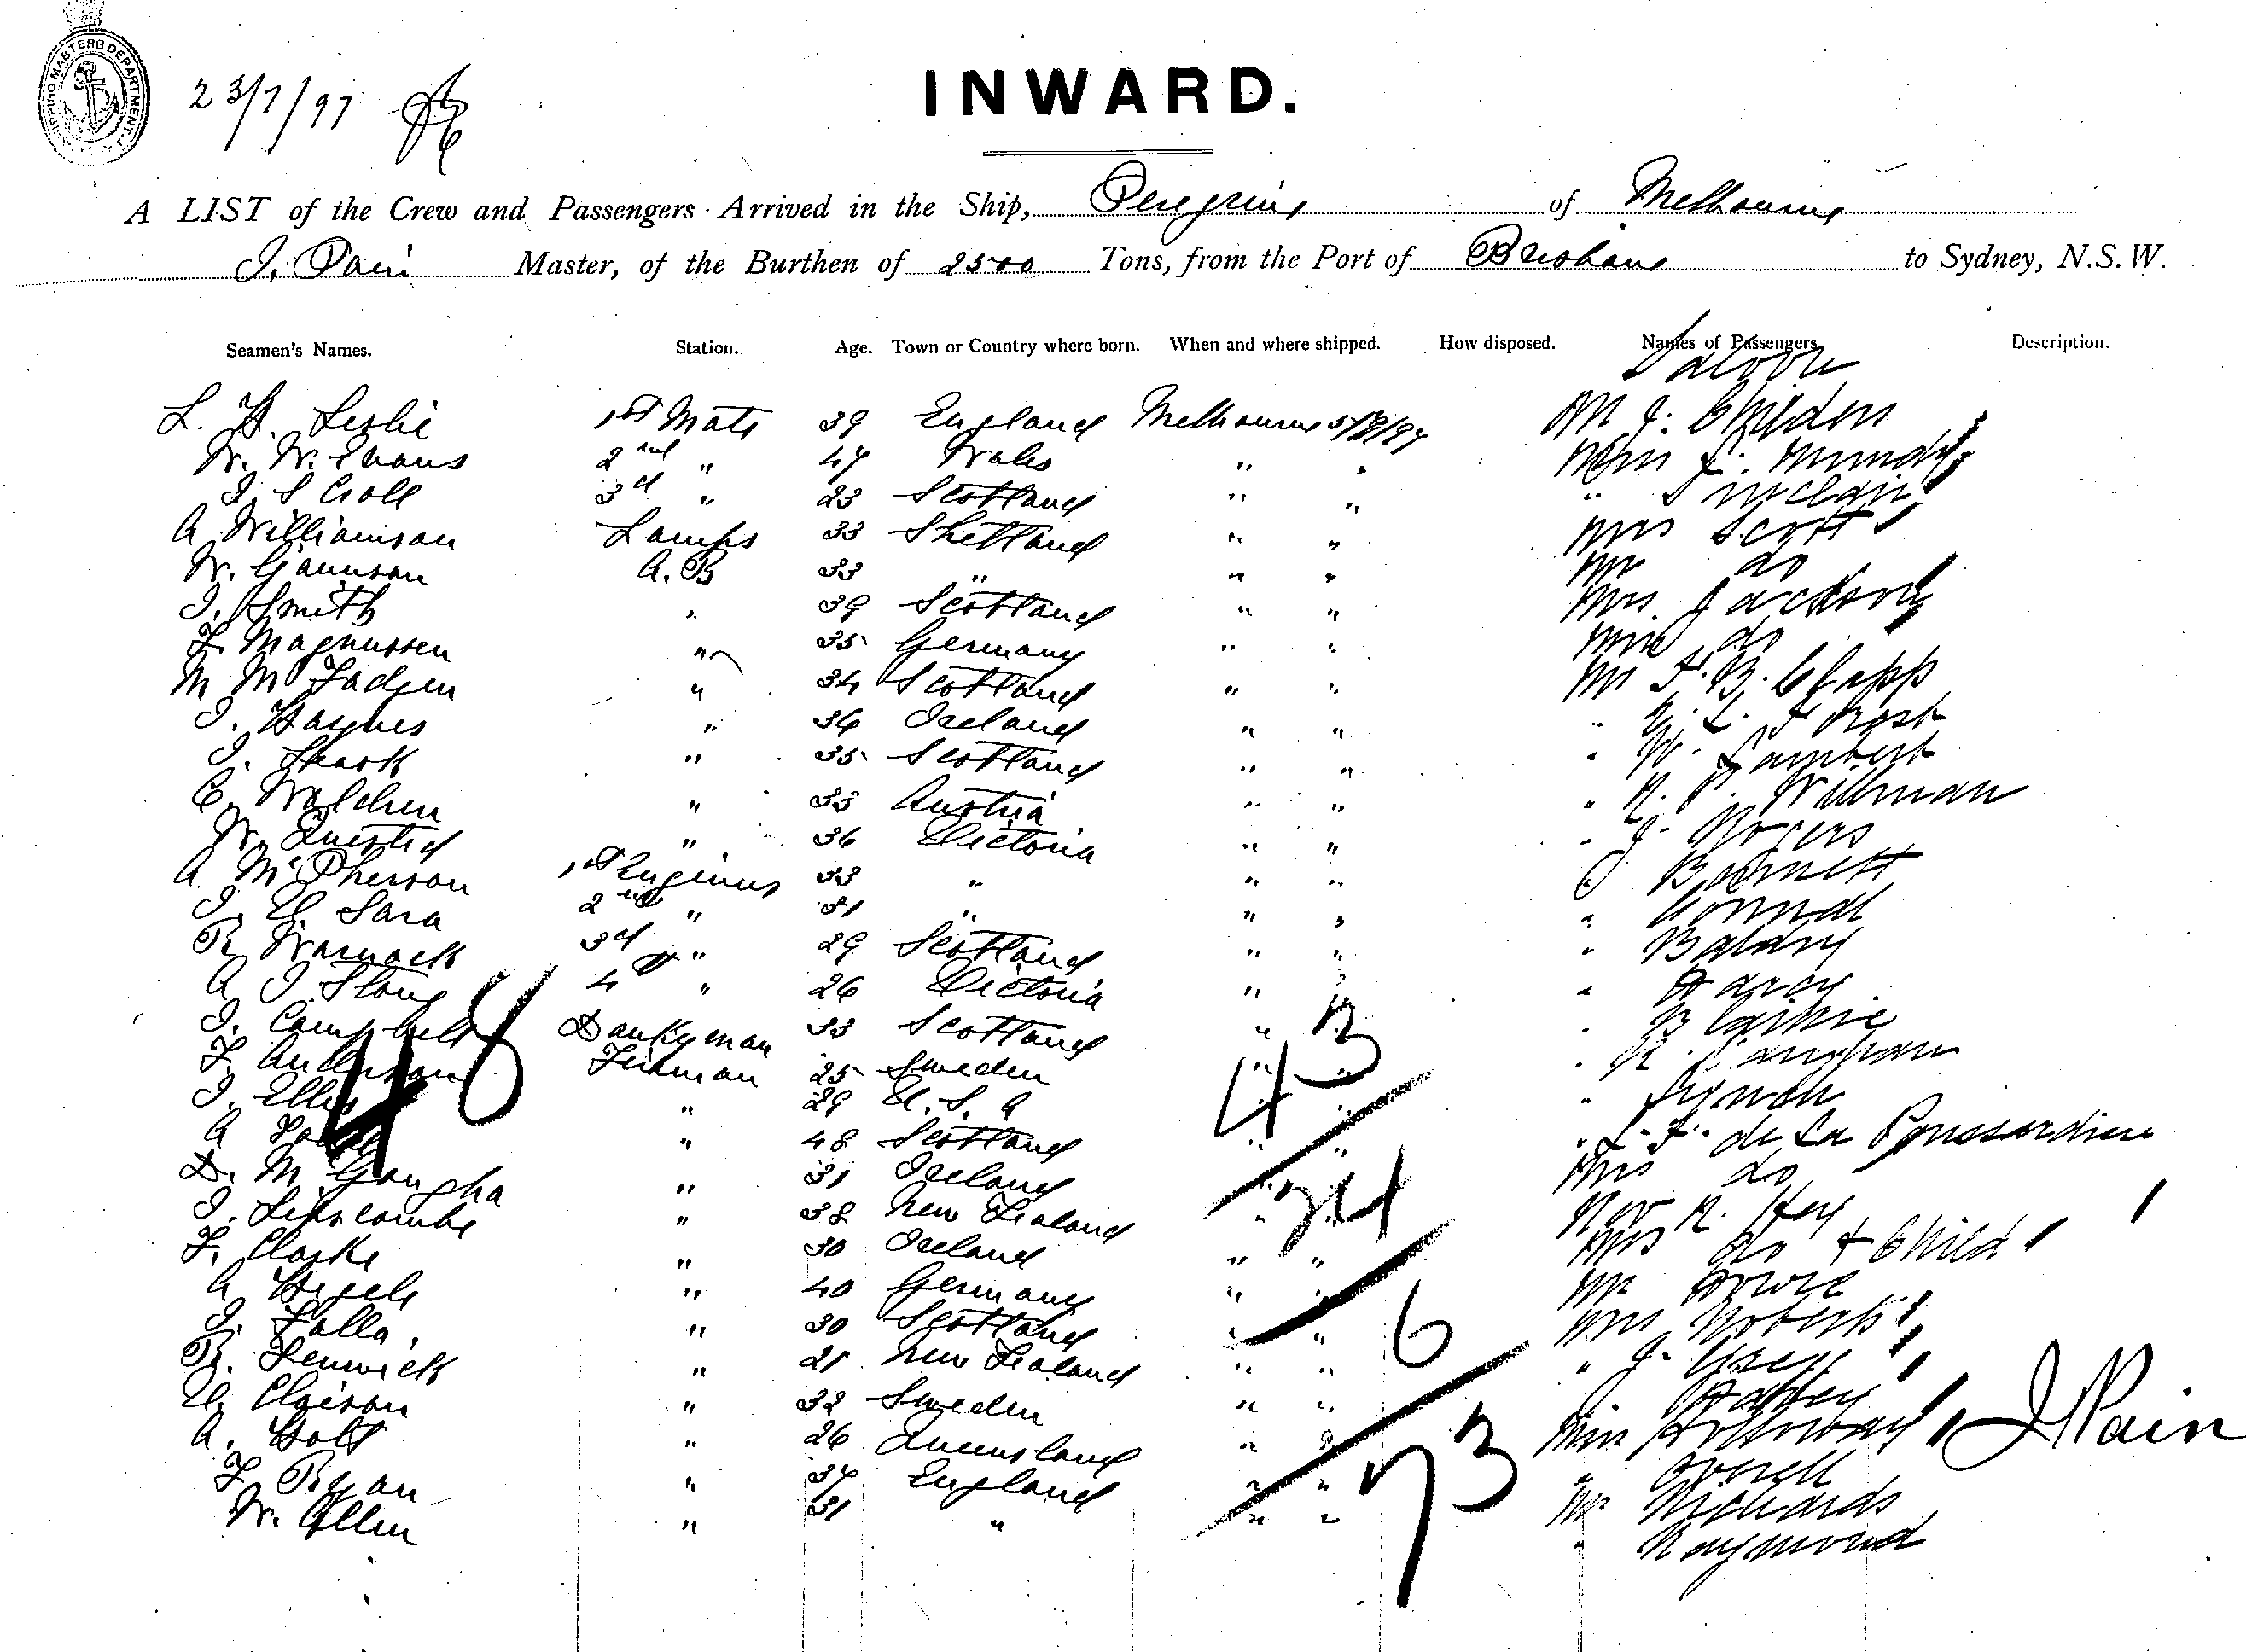 SHIPPING MASTERS DEPARTMENT
23/7/97
INWARD.
A LIST of the Crew and Passengers Arrived in the Ship, Peregrine of Melbourne
J. Pain Master, of the Burthen of 2500 Tons, from the Port of Brisbane to Sydney, N.S.W.
Seamen's Names. Station. Age. Town or Country where born. When and where shipped. How disposed. Names of Passengers. Description.
Saloon
L. H. Leslie 1st Mate 39 England Melbourne M J. Childers
W. W. Evans 2nd " 47 Wales " " Miss L. Mundy
J. S. Croll 3d " 23 Scotland " " " Sinclair
A Williamson Lamps 33 Shetland " " Mrs Scott
W. Gaunson A. B 33 " " " Mr do
J. Smith " 39 Scotland " " Mrs Jackson
F. Magnussen " 35 Germany " " Miss do
M McFadgen " 34 Scotland " " Mr F. B. Clapp
J. Haynes " 36 Ireland " " "
J. Shark " 35 Scotland " " " W. Lambert
C. " 33 Austria " " " Willman
W. Quested " 36 Victoria " " " J. Rogers
A McPherson 1st Engineer 33 " " " Barnett
J. H. Sara 2nd " 31 " " " "
R Warnock 3d " 29 Scotland " " "
A J Stone 4th " 26 Victoria " " "
J. Campbell Donkeyman 33 Scotland " " " Blaikie
F. Anderson Fireman 25 Sweden " " "
J. Ellis " 29 U. S. A " " "
A " 48 Scotland " " " L. F. de La
D. McGougha " 31 Ireland " " Mrs do
J. Lipscombe " 38 New Zealand " " Rev R. Hey
F. Clarke " 30 Ireland " " Mrs do + Child
A Hegele " 40 Germany " " Mr Howie
J. Falla " 30 Scotland " " Mrs Roberts
R. Fenwick " 21 New Zealand " " " J. Grey
" 32 Sweden " "
A. Holt " 26 Queensland " " Miss Holloway
F. Ryan " 37 England " " " Overell
W. Allen " 31 " " " Mr Richards
" Raymond
48
43
24
6
73
J Pain